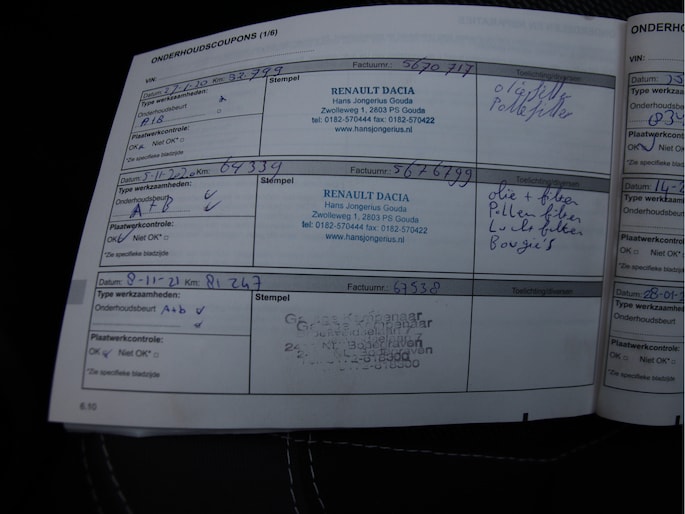 ONDERHOUDSCOUPONS (1/6)
VIN:
Datum: 27-1-20 Km: 32.799 Factuurnr.: 5670717
Type werkzaamheden: Stempel
Onderhoudsbeurt
A/B
Plaatwerkcontrole:
OK Niet OK*
*Zie specifieke bladzijde
RENAULT DACIA
Hans Jongerius Gouda
Zwolleweg 1, 2803 PS Gouda
tel: 0182-570444 fax: 0182-570422
www.hansjongerius.nl
oliefilter
Pollefilter
Datum: 5-11-2020 Km: 64339 Factuurnr.: 5676799
Type werkzaamheden: Stempel
Onderhoudsbeurt
A+B
Plaatwerkcontrole:
OK Niet OK*
*Zie specifieke bladzijde
RENAULT DACIA
Hans Jongerius Gouda
Zwolleweg 1, 2803 PS Gouda
tel: 0182-570444 fax: 0182-570422
www.hansjongerius.nl
olie + filter
Pollen filter
Lucht filter
Bougie's
Datum: 8-11-21 Km: 81 247 Factuurnr.: 67538
Type werkzaamheden: Stempel
Onderhoudsbeurt A+b
Plaatwerkcontrole:
OK Niet OK*
*Zie specifieke bladzijde
6.10
ONDERHO
VIN:
Datum:
Type werkzaa
Onderhoudsbeurt
Plaatwerkcontro
OK Niet OK*
*Zie specifieke bla
Datum: 14-2
Type werkzaam
Onderhoudsbeurt
Plaatwerkcontro
OK Niet OK*
*Zie specifieke blad
Datum: 28-01-2
Type werkzaamh
Onderhoudsbeurt
Plaatwerkcontrole
OK Niet OK*
*Zie specifieke bladz